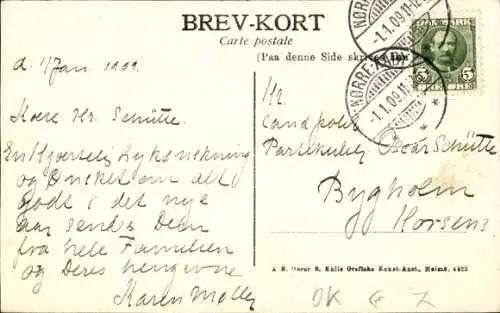 BREV-KORT
Carte postale
(Paa denne Side skrives kun
NØRRE-
-1.1.09.11-12
DANMARK
5 5
NØRRE-
-1.1.09.11-
d. 1/Jan. 1909.
Kære Hr. Schütte.
En hjertelig Lykønskning
og Ønsket om alt
godt i det nye
Aar sendes Dem
fra hele Familien
og Deres hengivne
Karen Møller
Hr.
Cand. polit.
Oscar Schütte
Bygholm
Horsens
A B. Oscar S. Kulls Grafiska Konst-Anst., Malmö, 4492
DK